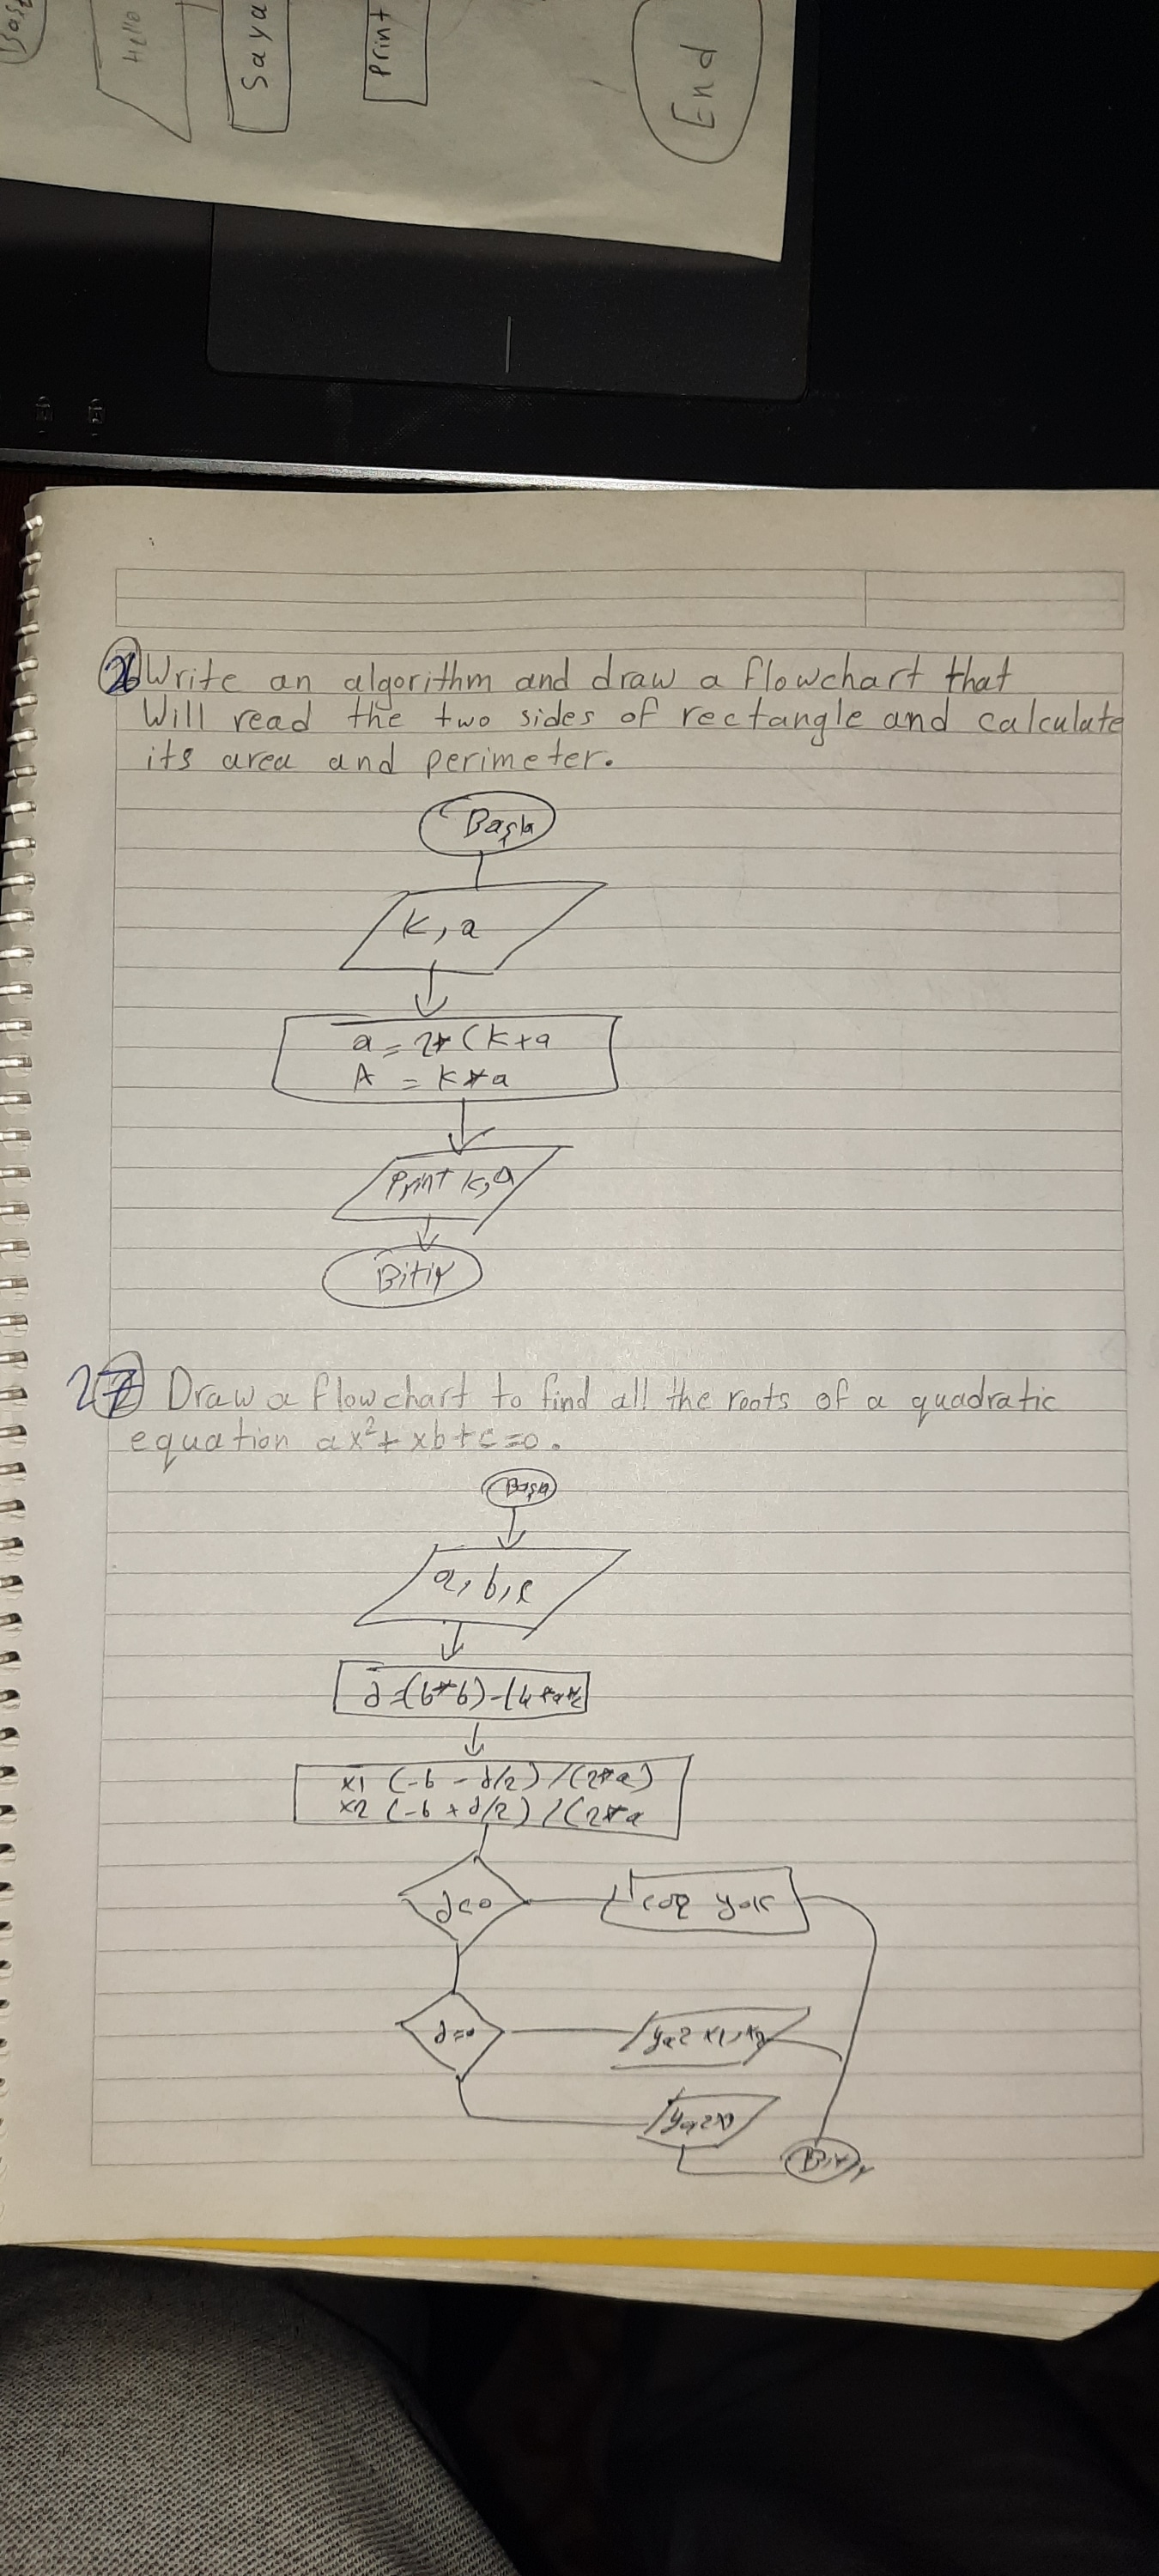 Hello
Saya
Print
End
26 Write an algorithm and draw a flowchart that
Will read the two sides of rectangle and calculate
its area and perimeter.
Başla
K, a
a = 2* (K+a
A = K*a
Print k, a
Bitir
27 Draw a flowchart to find all the roots of a quadratic
equation ax²+ xb+c=0.
Başla
a, b, c
d=(b*b)-(4*a*c
x1 (-b - d/2) /(2*a)
x2 (-b + d/2) /(2*a
d<0
yok
d=0
yaz x1, x2
yaz
Bitir